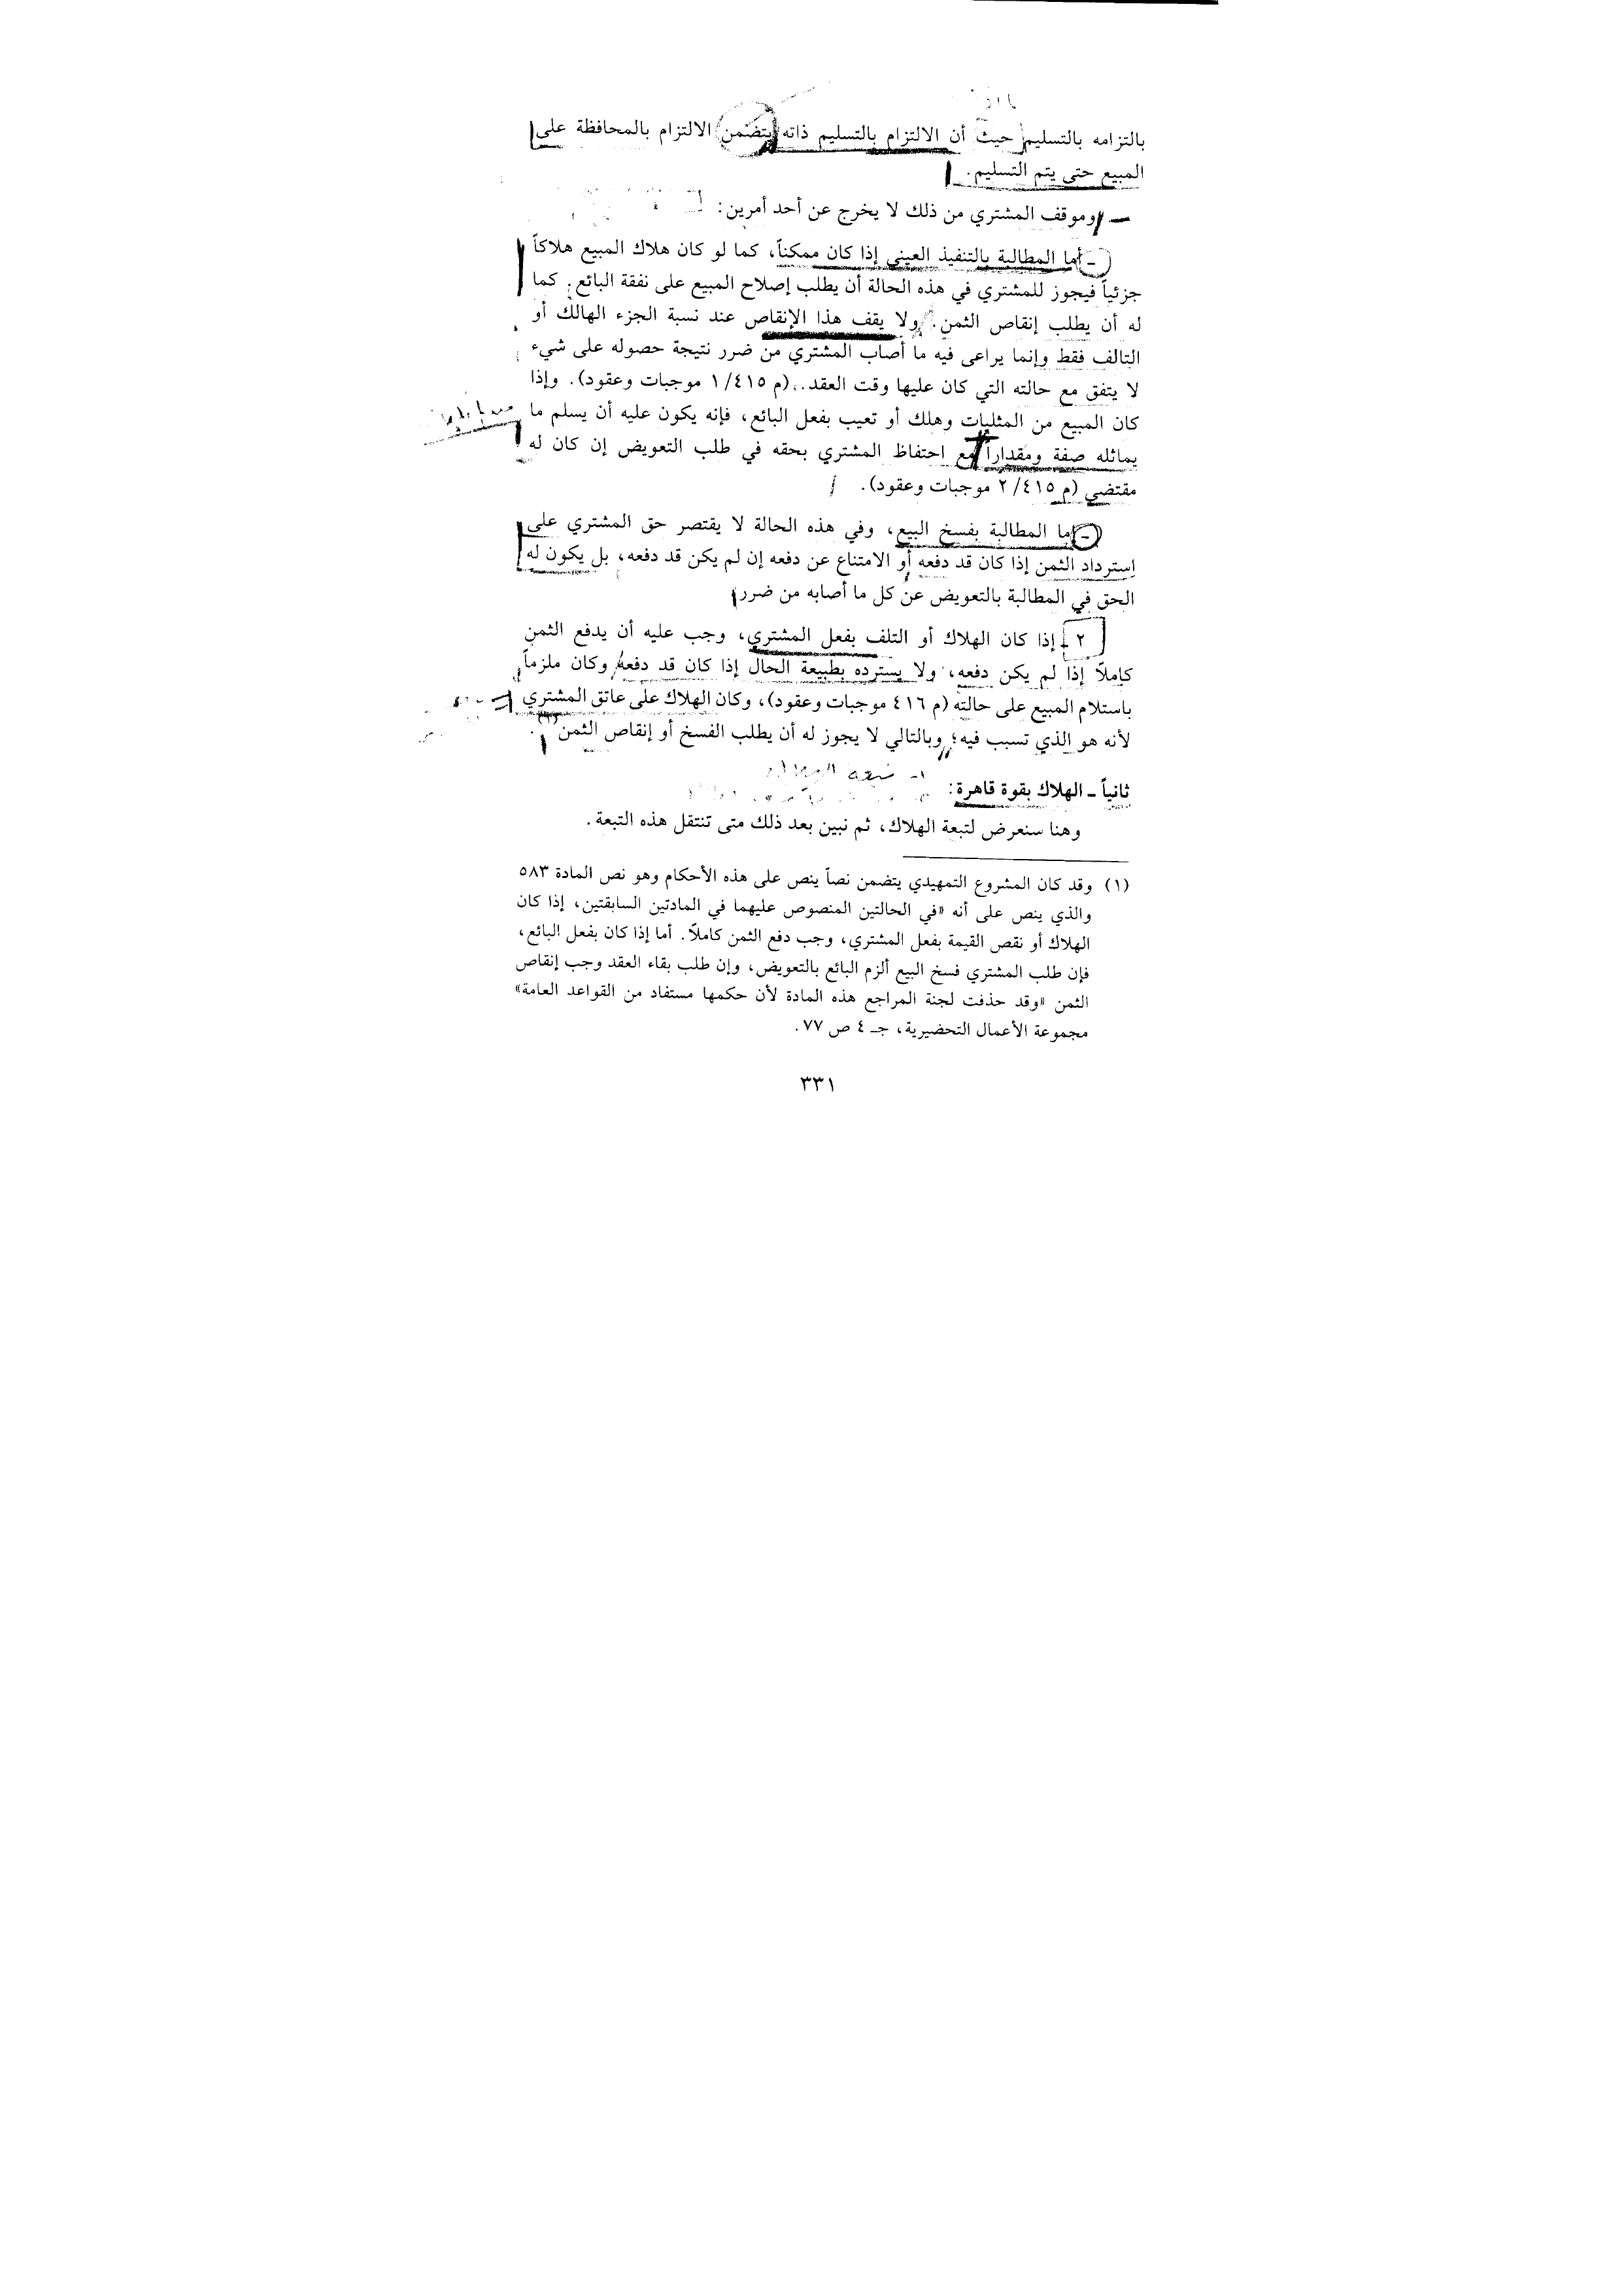 بالتزامه بالتسليم حيث أن الالتزام بالتسليم ذاته يتضمن الالتزام بالمحافظة على
المبيع حتى يتم التسليم.
وموقف المشتري من ذلك لا يخرج عن أحد أمرين:
- أما المطالبة بالتنفيذ العيني إذا كان ممكناً، كما لو كان هلاك المبيع هلاكاً
جزئياً فيجوز للمشتري في هذه الحالة أن يطلب إصلاح المبيع على نفقة البائع. كما
له أن يطلب إنقاص الثمن. ولا يقف هذا الإنقاص عند نسبة الجزء الهالك أو
التالف فقط وإنما يراعى فيه ما أصاب المشتري من ضرر نتيجة حصوله على شيء
لا يتفق مع حالته التي كان عليها وقت العقد.. (م ١/٤١٥ موجبات وعقود). وإذا
كان المبيع من المثليات وهلك أو تعيب بفعل البائع، فإنه يكون عليه أن يسلم ما
يماثله صفة ومقداراً مع احتفاظ المشتري بحقه في طلب التعويض إن كان له
مقتضي (م ٢/٤١٥ موجبات وعقود).
- إما المطالبة بفسخ البيع، وفي هذه الحالة لا يقتصر حق المشتري على
استرداد الثمن إذا كان قد دفعه أو الامتناع عن دفعه إن لم يكن قد دفعه، بل يكون له
الحق في المطالبة بالتعويض عن كل ما أصابه من ضرر
٢ - إذا كان الهلاك أو التلف بفعل المشتري، وجب عليه أن يدفع الثمن
كاملاً إذا لم يكن دفعه، ولا يسترده بطبيعة الحال إذا كان قد دفعه وكان ملزماً
باستلام المبيع على حالته (م ٤١٦ موجبات وعقود)، وكان الهلاك على عاتق المشتري
لأنه هو الذي تسبب فيه؛ وبالتالي لا يجوز له أن يطلب الفسخ أو إنقاص الثمن.
ثانياً - الهلاك بقوة قاهرة:
وهنا سنعرض لتبعة الهلاك، ثم نبين بعد ذلك متى تنتقل هذه التبعة.
(١) وقد كان المشروع التمهيدي يتضمن نصاً ينص على هذه الأحكام وهو نص المادة ٥٨٣
والذي ينص على أنه «في الحالتين المنصوص عليهما في المادتين السابقتين، إذا كان
الهلاك أو نقص القيمة بفعل المشتري، وجب دفع الثمن كاملاً. أما إذا كان بفعل البائع،
فإن طلب المشتري فسخ البيع ألزم البائع بالتعويض، وإن طلب بقاء العقد وجب إنقاص
الثمن «وقد حذفت لجنة المراجع هذه المادة لأن حكمها مستفاد من القواعد العامة»
مجموعة الأعمال التحضيرية، جـ ٤ ص ٧٧.
٣٣١